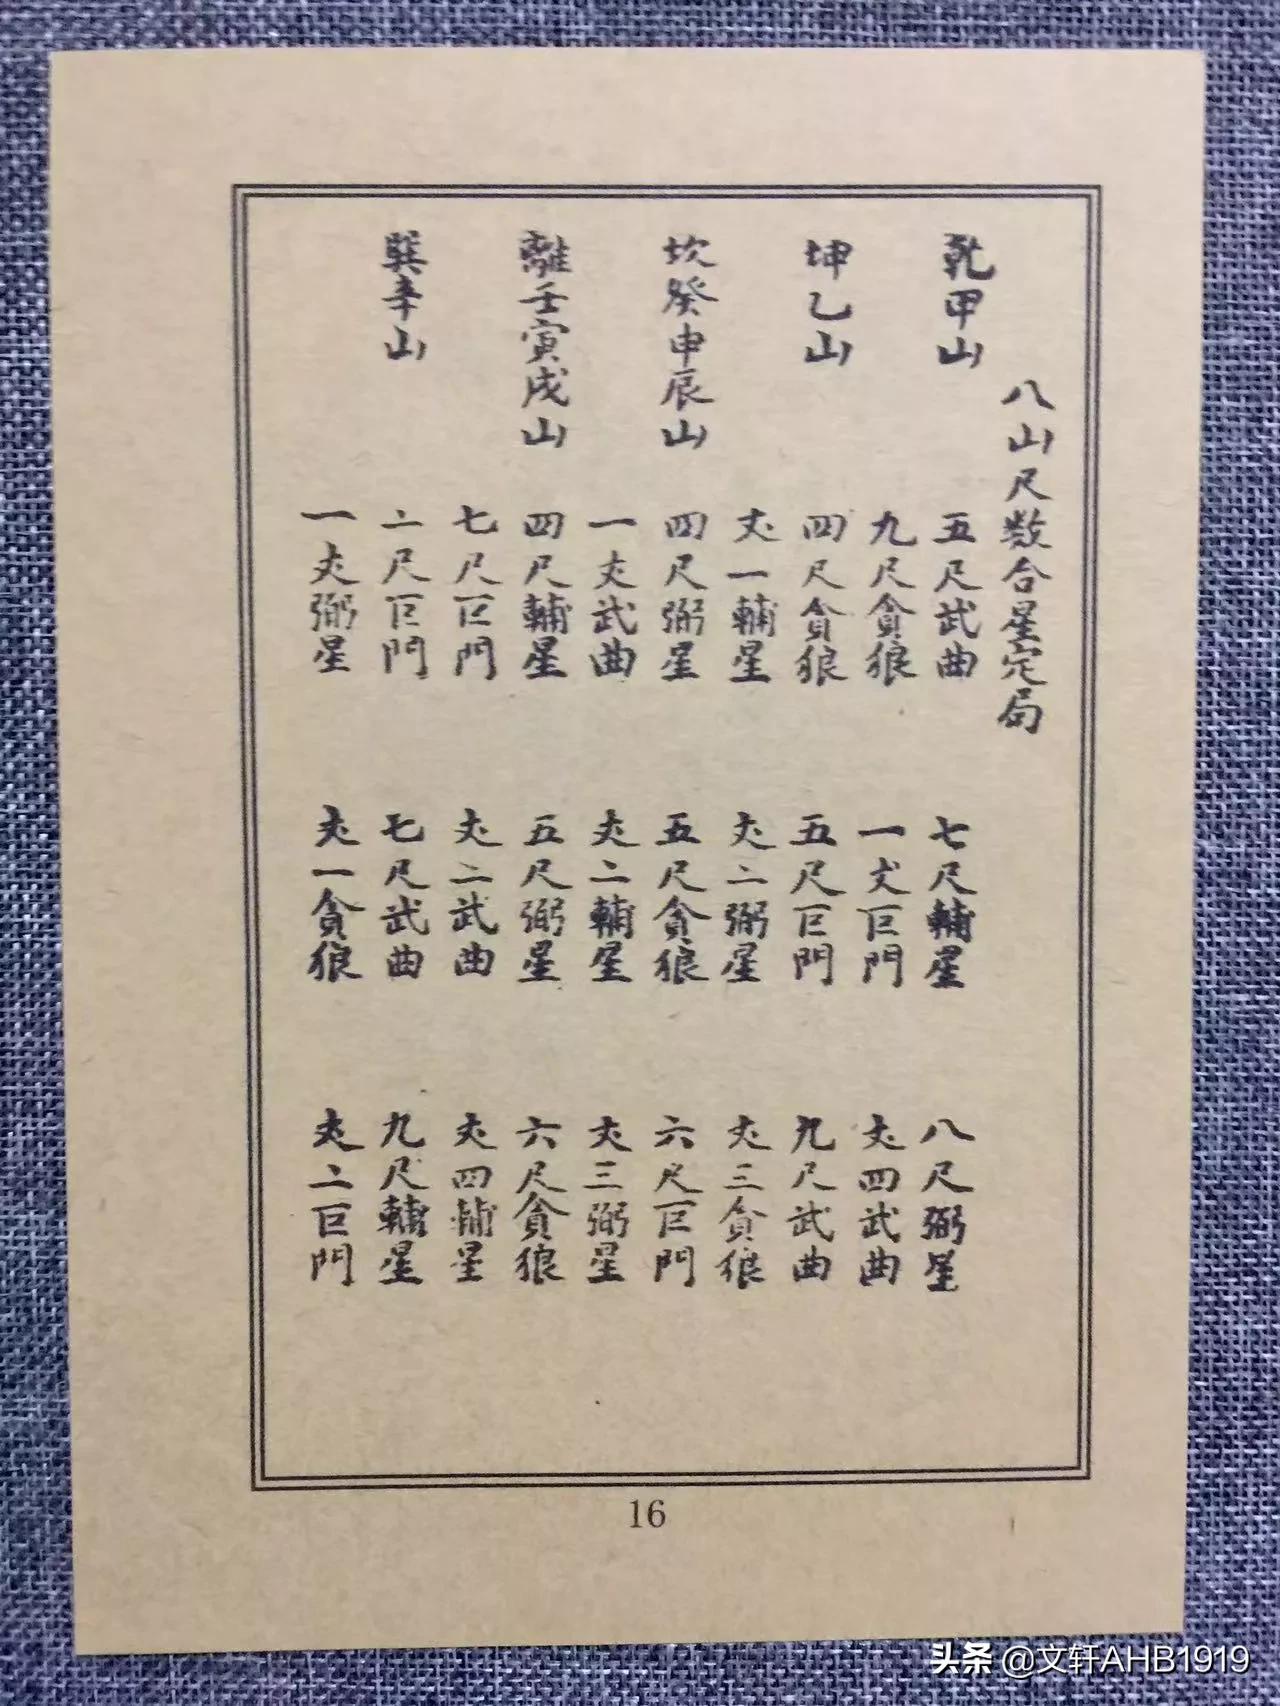 八山尺数合星定局
乾甲山 五尺武曲 七尺輔星 八尺弼星
九尺貪狼 一丈巨門 丈四武曲
坤乙山 四尺貪狼 五尺巨門 九尺武曲
丈一輔星 丈二弼星 丈三貪狼
坎癸申辰山 四尺弼星 五尺貪狼 六尺巨門
一丈武曲 丈二輔星 丈三弼星
離壬寅戌山 四尺輔星 五尺弼星 六尺貪狼
七尺巨門 丈二武曲 丈四輔星
巽辛山 二尺巨門 七尺武曲 九尺輔星
一丈弼星 丈一貪狼 丈二巨門
16
头条 @文轩AHB1919